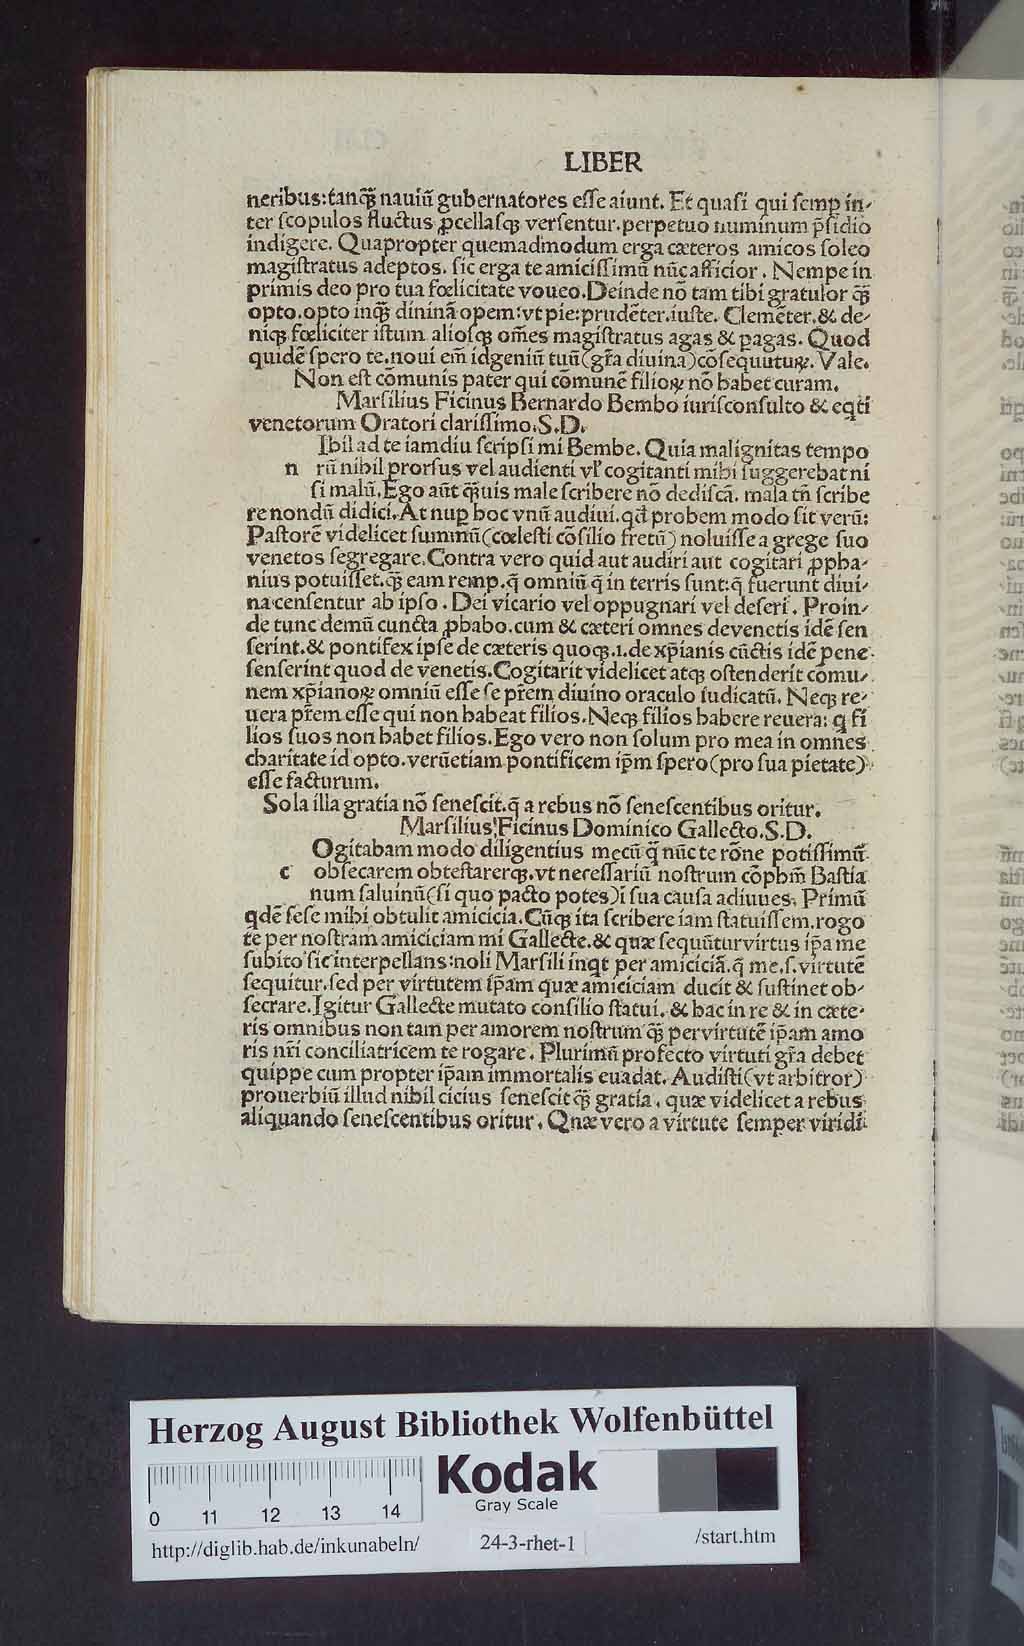 LIBER
neribus:tanq̃ꝫ nauiũ gubernatores eſſe aiunt. Et quaſi qui ſemꝑ in-
ter ſcopulos fluctus ꝓcellaſqꝫ verſentur.perpetuo numinum p̃ſidio
indigere. Quapropter quemadmodum erga cæteros amicos ſoleo
magiſtratus adeptos. ſic erga te amiciſſimũ nũc afficior. Nempe in
primis deo pro tua fœlicitate voueo.Deinde nõ tam tibi gratulor q̃ꝫ
opto.opto inq̃ꝫ dininã opem:vt pie:prudẽter.iuſte. Clemẽter.& de-
niqꝫ fœliciter iſtum alioſqꝫ om̃es magiſtratus agas & ꝑagas. Quod
quidẽ ſpero te.noui em̃ idgeniũ tuũ(gr̃a diuina)cõſequutuꝝ. Vale.
Non eſt cõmunis pater qui cõmunẽ filioꝝ nõ habet curam.
Marſilius Ficinus Bernardo Bembo iuriſconſulto & eqti
venetorum Oratori clariſſimo.S.D.
Ihil ad te iamdiu ſcripſi mi Bembe. Quia malignitas tempo
n rũ nihil prorſus vel audienti vl' cogitanti mihi ſuggerebat ni
ſi malũ.Ego aũt q̃ꝫuis male ſcribere nõ dediſcã. mala tñ ſcribe
re nondũ didici.At nuꝑ hoc vnũ audiui.qd̃ probem modo ſit verũ:
Paſtorẽ videlicet ſummũ(cœleſti cõſilio fretũ)noluiſſe a grege ſuo
venetos ſegregare.Contra vero quid aut audiri aut cogitari ꝓpha-
nius potuiſſet.q̃ꝫ eam remp.q̃ omniũ q̃ in terris ſunt:q̃ fuerunt diui-
na cenſentur ab ipſo. Dei vicario vel oppugnari vel deſeri. Proin-
de tunc demũ cuncta ꝓbabo.cum & cæteri omnes de venetis idẽ ſen
ſerint.& pontifex ipſe de cæteris quoqꝫ.i.de xp̃ianis cũctis idẽ pene
ſenſerint quod de venetis.Cogitarit videlicet atqꝫ oſtenderit cõmu-
nem xp̃ianoꝝ omniũ eſſe ſe pr̃em diuino oraculo iudicatũ. Neqꝫ re-
uera pr̃em eſſe qui non habeat filios.Neqꝫ filios habere reuera: q fi
lios ſuos non habet filios.Ego vero non ſolum pro mea in omnes
charitate id opto.verũetiam pontificem ip̃m ſpero(pro ſua pietate)
eſſe facturum.
Sola illa gratia nõ ſeneſcit.q̃ a rebus nõ ſeneſcentibus oritur.
Marſilius Ficinus Dominico Gallecto.S.D.
Ogitabam modo diligentius mecũ q̃ nũc te rõne potiſſimũ
c obſecarem obteſtarerqꝫ.vt neceſſariũ noſtrum cõphm̃ Baſtia
num ſaluinũ(ſi quo pacto potes)ĩ ſua cauſa adiuues. Primũ
qdẽ ſeſe mihi obtulit amicicia.Cũqꝫ ita ſcribere iam ſtatuiſſem.rogo
te per noſtram amiciciam mi Gallecte.& quæ ſequũtur virtus ip̃a me
ſubito ſic interpellans:noli Marſili inqt per amiciciã.q̃ me.ſ.virtutẽ
ſequitur.ſed per virtutem ip̃am quæ amiciciam ducit & ſuſtinet ob-
ſecrare.Igitur Gallecte mutato conſilio ſtatui. & hac in re & in cæte-
ris omnibus non tam per amorem noſtrum q̃ꝫ per virtutẽ ip̃am amo
ris nr̃i conciliatricem te rogare. Plurimũ profecto virtuti gr̃a debet
quippe cum propter ip̃am immortalis euadat. Audiſti(vt arbitror)
prouerbiũ illud nihil cicius ſeneſcit q̃ꝫ gratia. quæ videlicet a rebus
aliquando ſeneſcentibus oritur. Qnæ vero a virtute ſemper viridi
Herzog August Bibliothek Wolfenbüttel
Kodak
Gray Scale
0 11 12 13 14
http://diglib.hab.de/inkunabeln/ 24-3-rhet-1 /start.htm